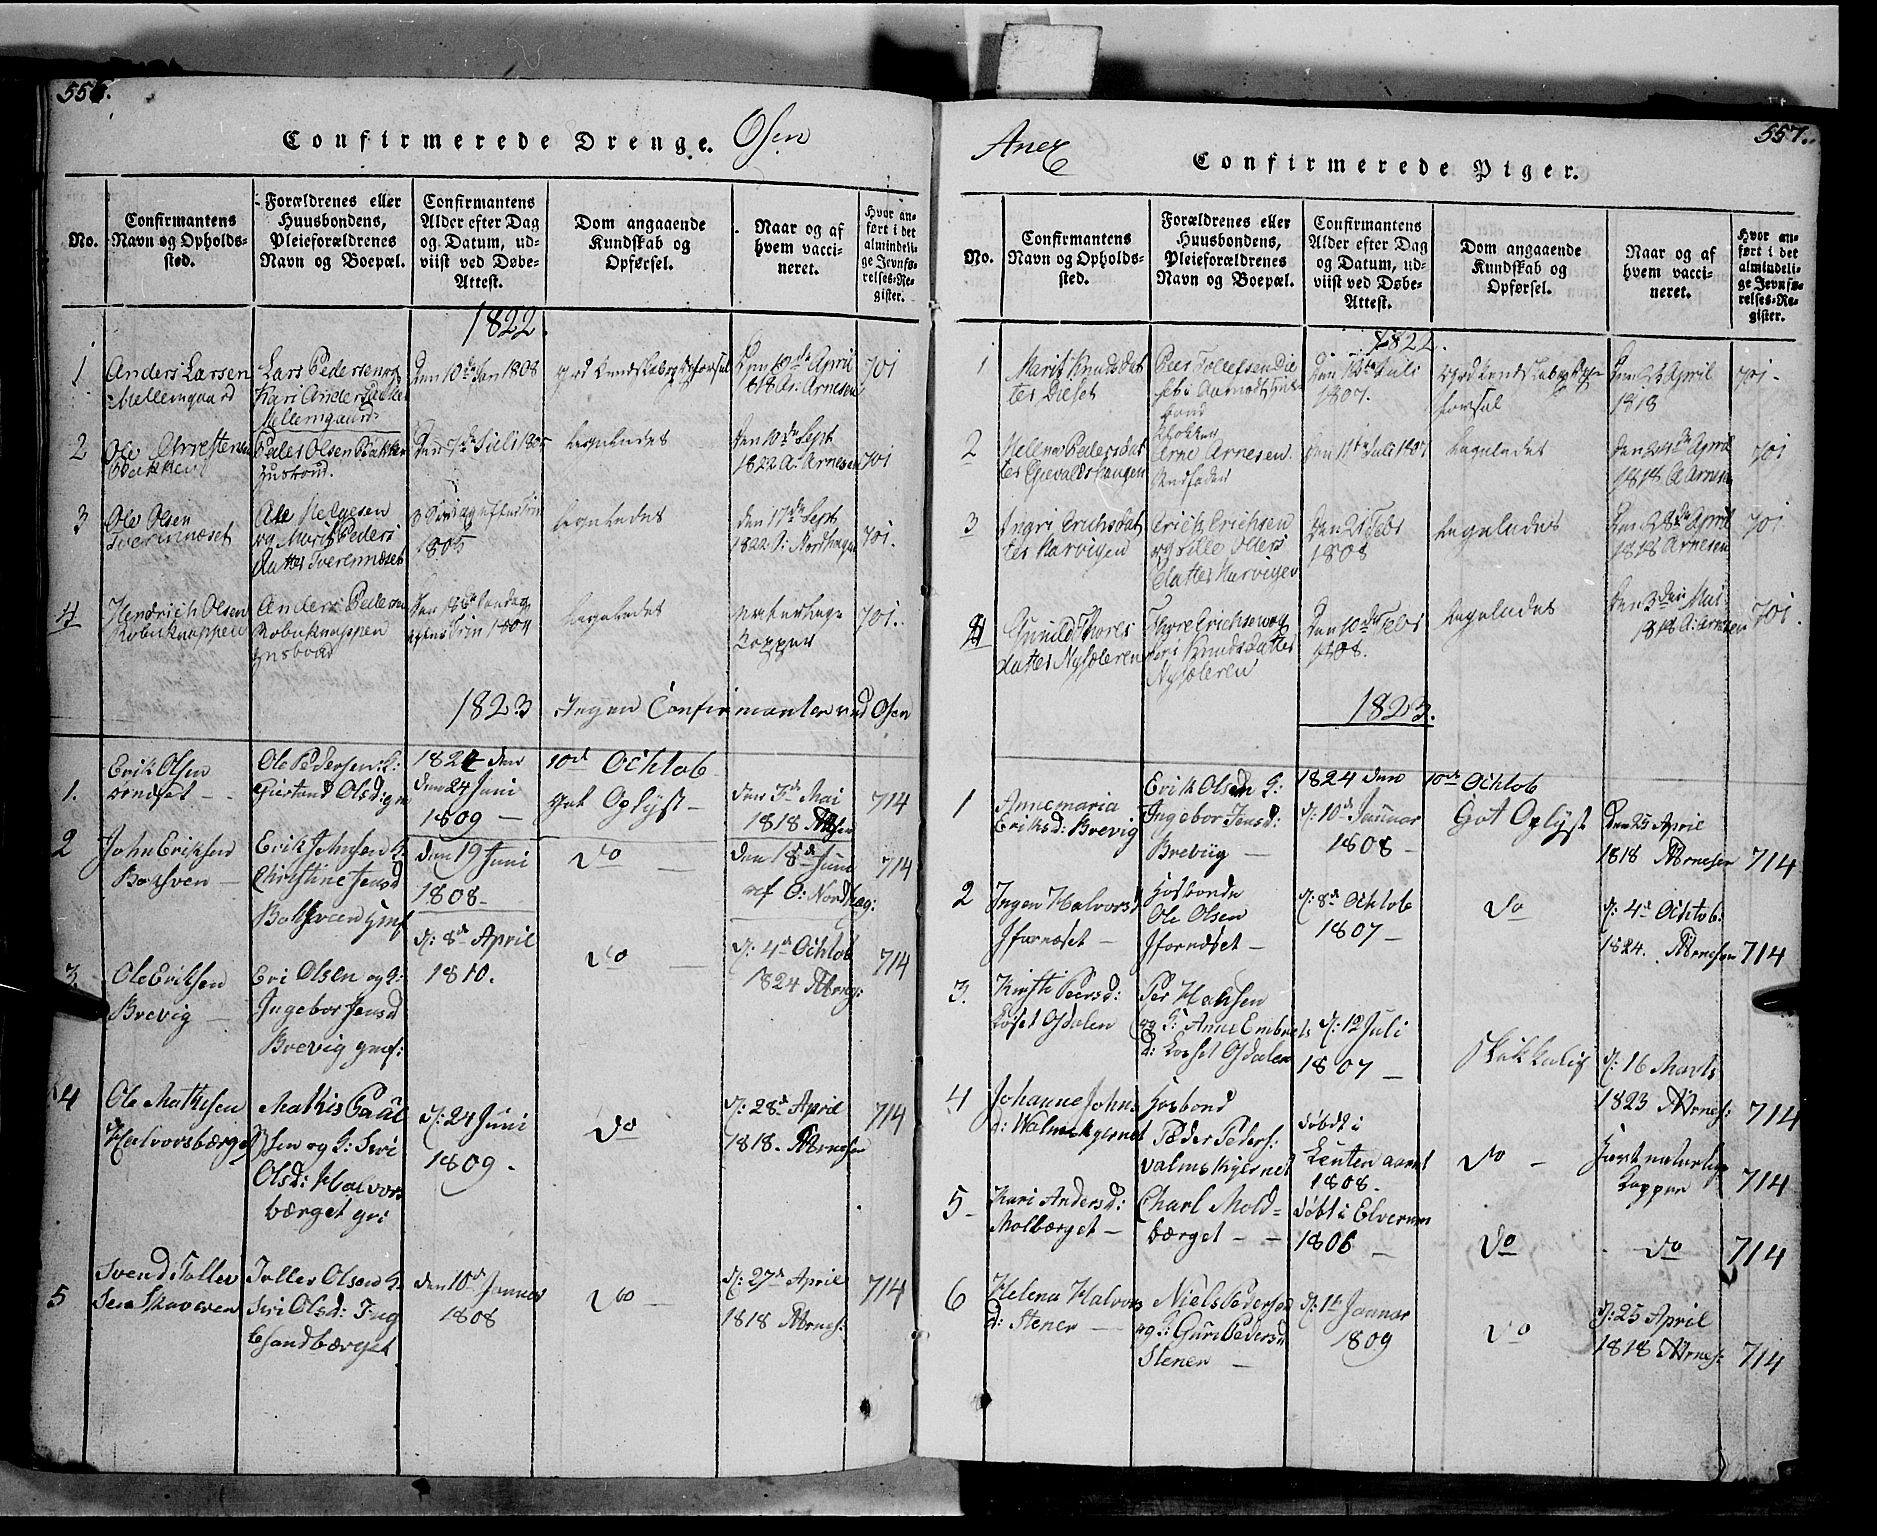 556.
Confirmerede Drenge. Osen
No.
Confirmantens
Navn og Opholds-
sted.
Forældrenes eller
Huusbondens,
Pleieforældrenes
Navn og Boepæl.
Confirmantens
Alder efter Dag
og Datum, ud-
viist ved Døbe-
Attest.
Dom angaaende
Kundskab og
Opførsel.
Naar og af
hvem vacci-
neret.
Hvor an-
ført i det
almindeli-
ge Jevnfø-
relses-Re-
gister.
1822.
1
Anders Larsen
Mellemgaard
Lars Pedersen og
Kari Andersdatter
Mellemgaard
Den 10de Jan 1808
god Kundskab og Opførsel
Den 10de April
1818 A: Arnesen
701
2
Ole Christensen
Bakken
Peder Olsen Bakken
Husbond.
Den 7de Juli 1805
Legeledes
Den 10de Sept
1822 A: Arnesen
701
3
Ole Olsen
Tverennæset
Ole Helgesen
og Marit Peders
datter Tverennæset
1805
Legeledes
Den 17de Sept
1822 O: Nordhagen
701.
4
Hendrich Olsen
Robueknappen
Anders Pedersen
Robueknappen
Husbond
1804
Legeledes
Naturlige
Kopper
701.
1823 Ingen Confirmanter ved Osen
1.
Erik Olsen
ørndset -
Ole Pedersen :G:
Giertrud Olsd: gm
1824 den
den 24 Juni
1809 -
10de Ochtob
got Oplyst -
den 3de Mai
1818 AArnesen
714
2
John Eriksen
Bahsven -
Erik Johnsen G
Christine Jensd
Bahsveen gmf
den 19 Juni
1808 -
Do -
den 18de Juni
af O: Nordhag:
714
3.
Ole Eriksen
Brevig -
Eri Olsen og G:
Ingebor Jensd
Brevig gmf:
d: 8de April
1810.
Do -
d: 4de Ochtob
1824 AArnes:
714
4
Ole Mathisen
Halvorsbærget
Mathis Paul
sen og G: Siri
Olsd: Halvors
bærget
d: 24 Juni
1809.
Do
d: 28de April
1818. AArnesen
714
5
Svend Tollev
sen Skaveren
Tollev Olsen G
Siri Olsd: Ing
Esandbærget
den 10de Januar
1808
Do -
d: 27de April
1818 AArnes:
714
557.
Anex
Confirmerede Piger.
No.
Confirmantens
Navn og Opholds-
sted.
Forældrenes eller
Huusbondens,
Pleieforældrenes
Navn og Boepæl.
Confirmantens
Alder efter Dag
og Datum, ud-
viist ved Døbe-
Attest.
Dom angaaende
Kundskab og
Opførsel.
Naar og af
hvem vacci-
neret.
Hvor an-
ført i det
almindeli-
ge Jevnfø-
relses-Re-
gister.
1822.
1
Marit Knudsdat
ter Dieset
Peer Tollefsen Die
set
1807.
God Kundskab og Op-
førsel
1818
701 -
2
Helena Pedersdat
ter Gjevaldshaugen
Klokker
Arne Arnesen
Den 11te Juli 1807
Legeledes
Den 24de April
1818 A Arnesen
701
3
Ingri Erichsdat
ter Narvigen
Erich Erichsen
og Sille Peders
datter Narvigen
Den 21 Febr
1808
Legeledes
Den 28de April
1818 Arnesen
701
4
Gunild Thores
datter Nysæteren
Thore Erichsen og
Knudsdatter
Nysæteren
Den 10de Febr
1808.
Legeledes
Den 3den Mai
1818 A: Arnesen
701.
1823.
1
Annemaria
Eriksd: Brevig
Erik Olsen G:
Ingebor Jensd:
Breviig -
1824 den
d: 10de Januar
1808 -
10de Ochtob
Got Oplyst
Den 25 April
1818 AArnesen
714
2
Ingen Halvorsd
Jfornæset -
Hosbonde
Ole Olsen
Jfornæset -
d: 8de Ochtob
1807 -
Do
d: 4de Ochtob:
1824. AArnesen
714
3.
Kirsti Peersd:
Løset Osdalen
Per Halsen
og G: Anne Embrets
d: Løset Osdalen
d: 12 Juli
1807 -
Skikkelig
d: 16 Marts
1823 AArnes:
714
4
Johanne Johns
d: Walmekgernet
Hosbond
Peder Peders:
valmekgernet
døbdt i
Leuten aaret
1808.
Do -
havt naturlig
Kopper
714
5 -
Kari Andersd:
Molbærget -
Charl Mold-
bærget - -
døbt i Elverum
1806 -
Do
Do
714
6
Helena Halvors
d: Stener -
Niels Pedersen
og G: Guri Peders:
Stener -
d: 1te Januar
1809
Do
d: 25 April
1818 AArnes:
714